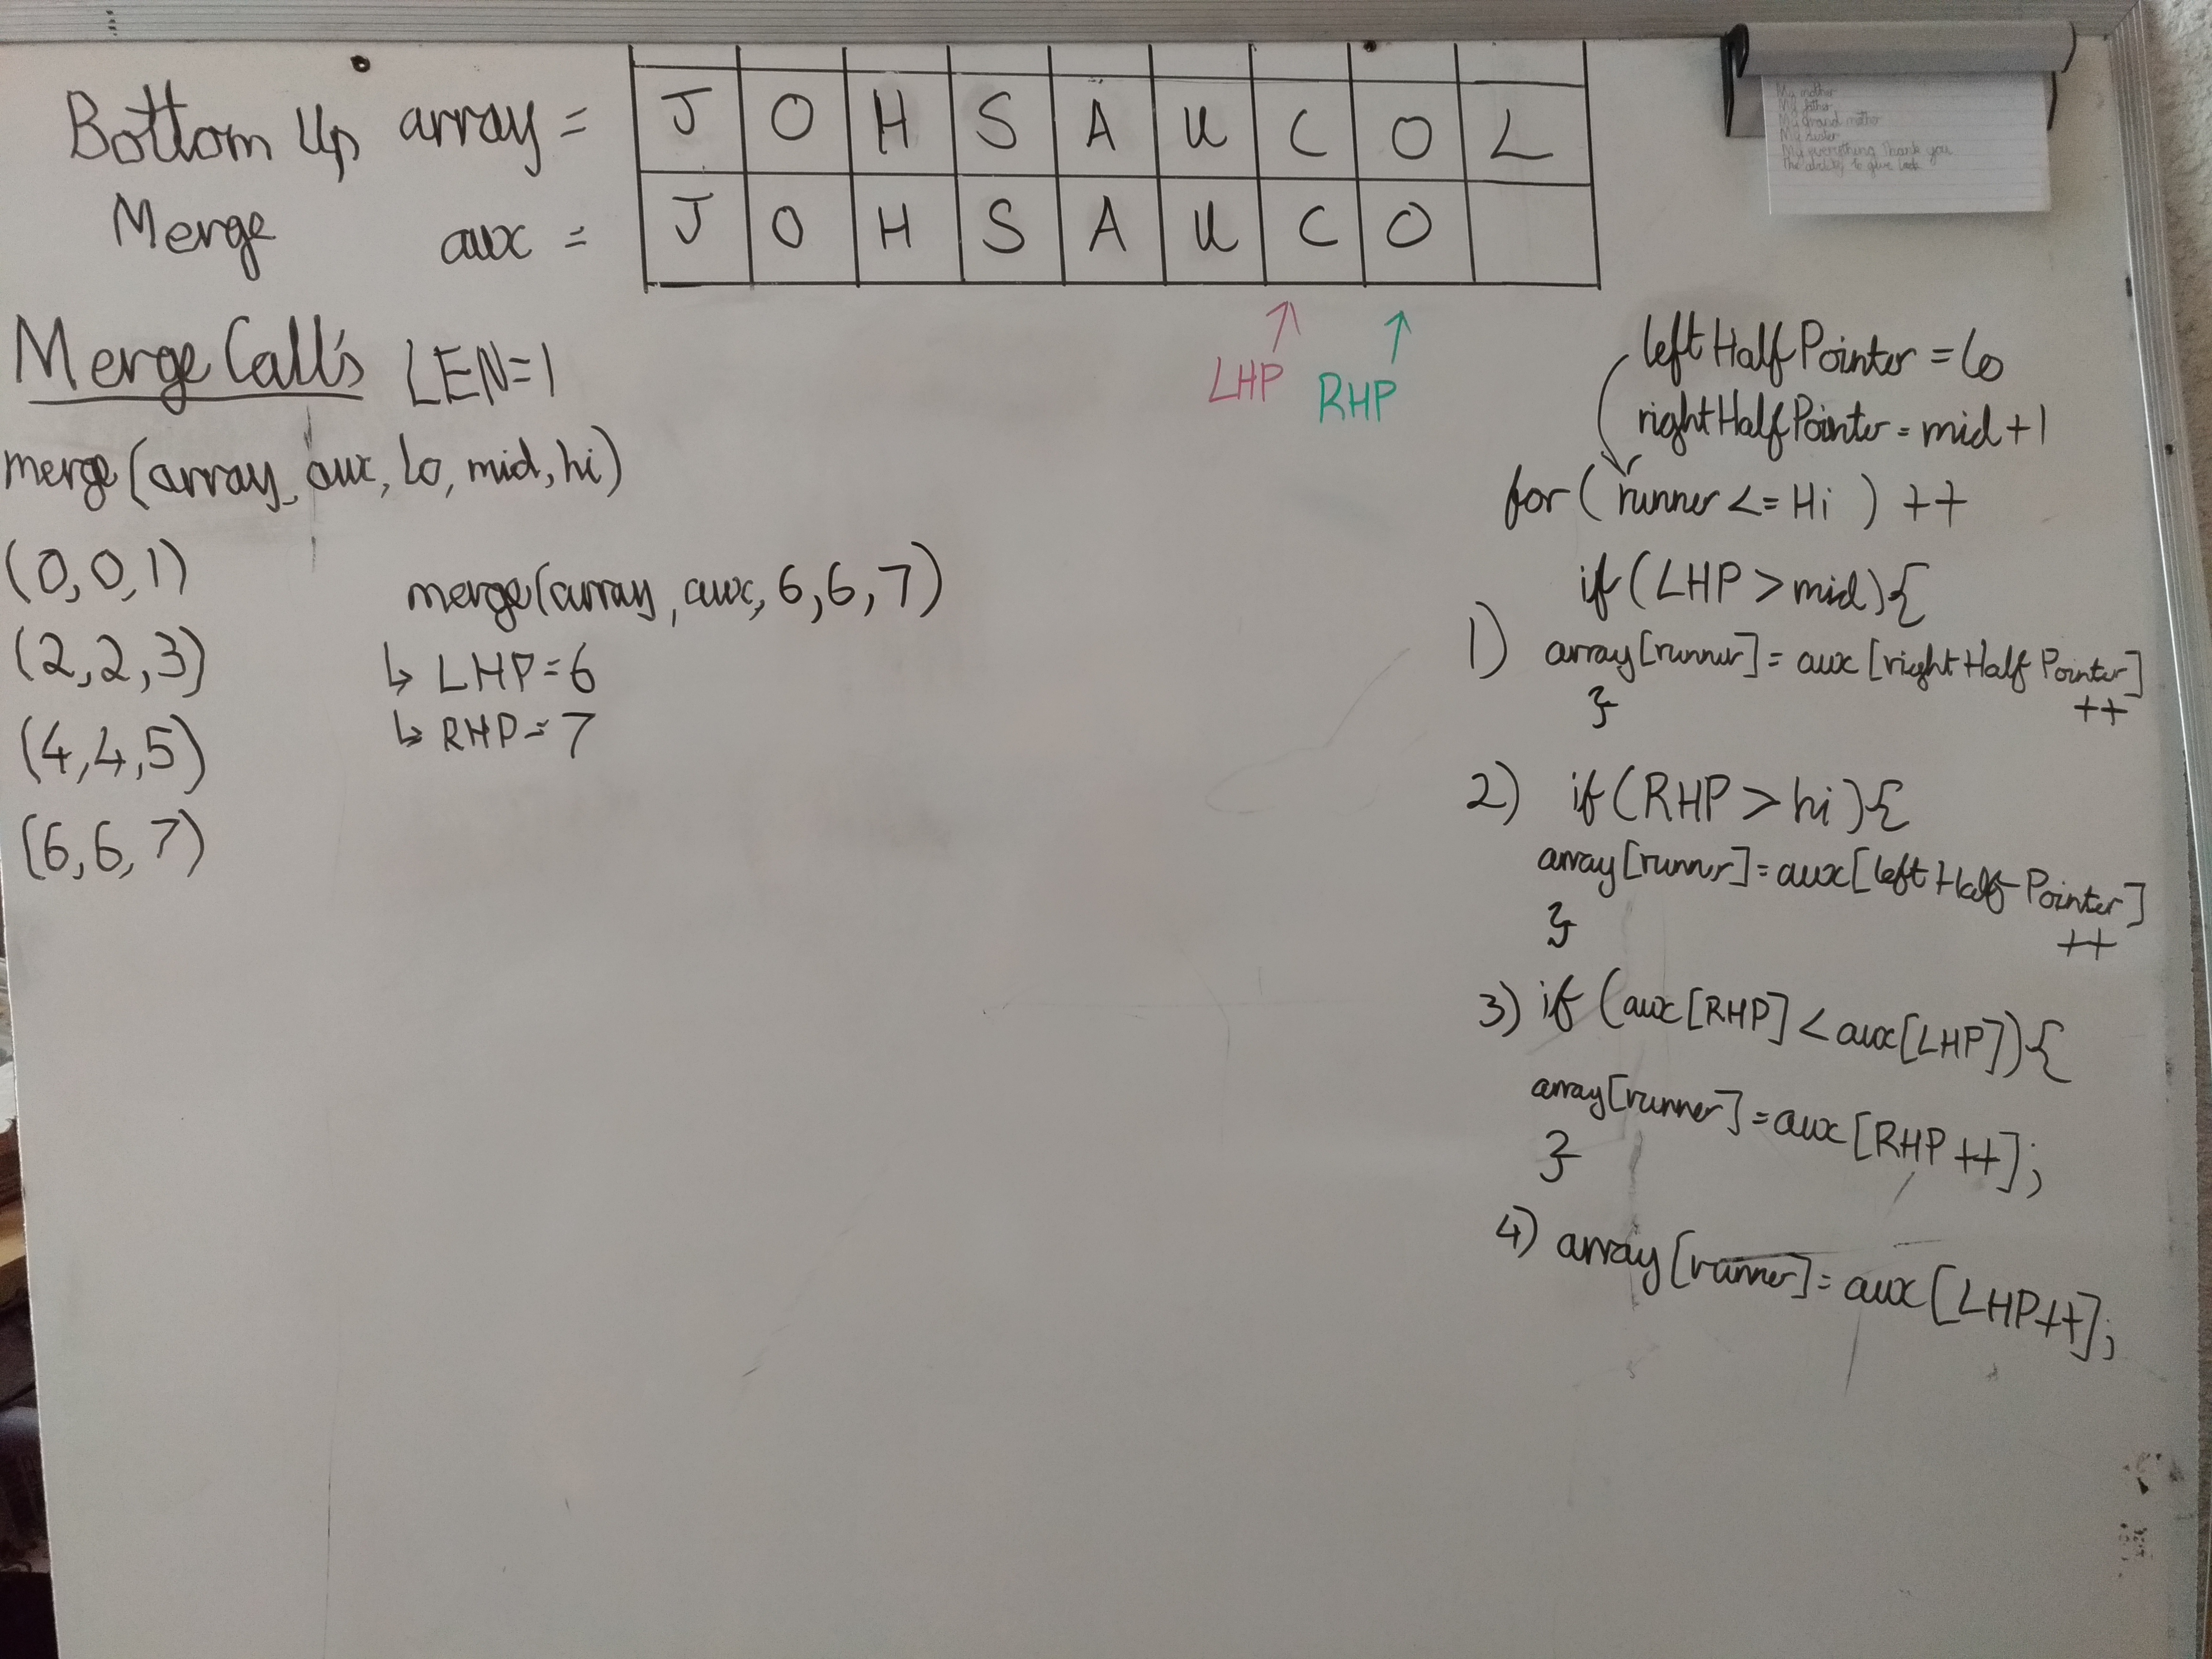 Bottom Up array = J O H S A U C O L
Merge aux = J O H S A U C O
Merge Call's LEN=1
merge(array, aux, lo, mid, hi)
(0,0,1)
(2,2,3)
(4,4,5)
(6,6,7)
merge(array, aux, 6,6,7)
↳ LHP=6
↳ RHP=7
LHP
RHP
leftHalfPointer = lo
rightHalfPointer = mid+1
for ( runner <= Hi ) ++
if (LHP > mid){
1) array[runner] = aux [rightHalfPointer]
++
}
2) if (RHP > hi){
array[runner] = aux[leftHalfPointer]
++
}
3) if (aux[RHP] < aux[LHP]){
array[runner] = aux[RHP++];
}
4) array[runner] = aux[LHP++];
My mother
My father
My grand mother
My sister
My everything Thank you
The ability to give